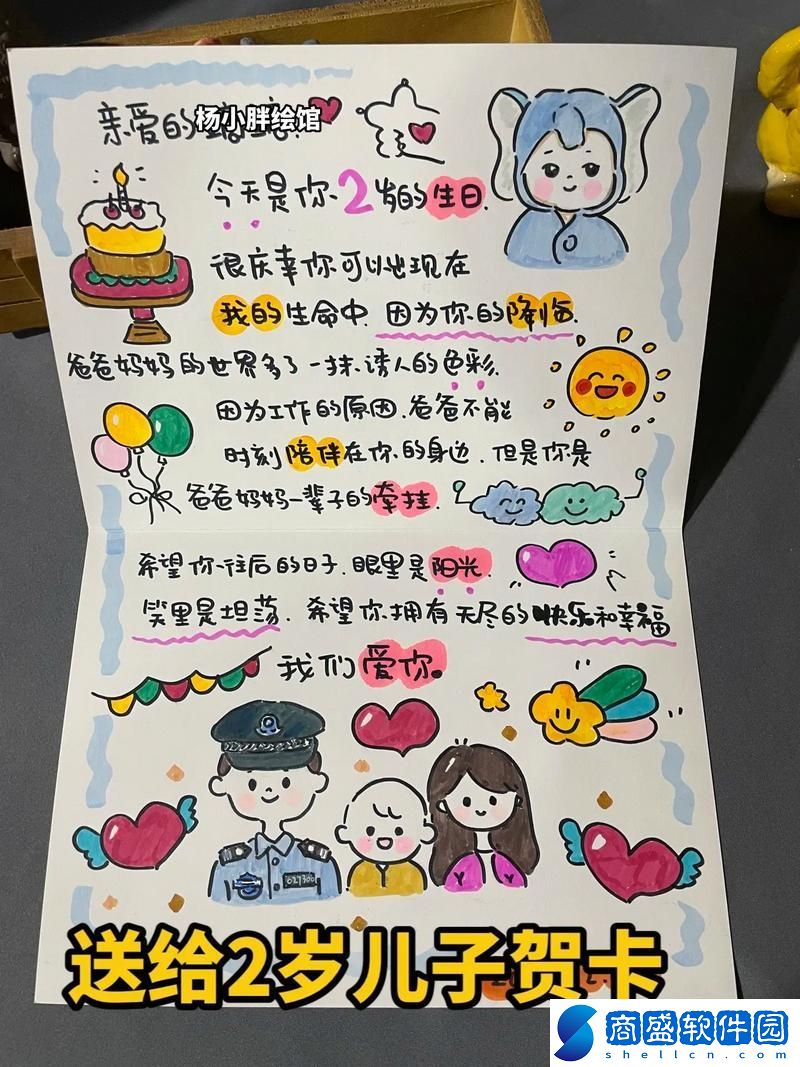 亲爱的
杨小胖绘馆
今天是你2岁的生日.
很庆幸你可以出现在
我的生命中.因为你的降临.
爸爸妈妈的世界多了一抹诱人的色彩.
因为工作的原因.爸爸不能
时刻陪伴在你的身边.但是你是
爸爸妈妈一辈子的牵挂.
希望你往后的日子.眼里是阳光.
笑里是坦荡.希望你拥有无尽的快乐和幸福
我们爱你。
送给2岁儿子贺卡
商盛软件园
shellcn.com